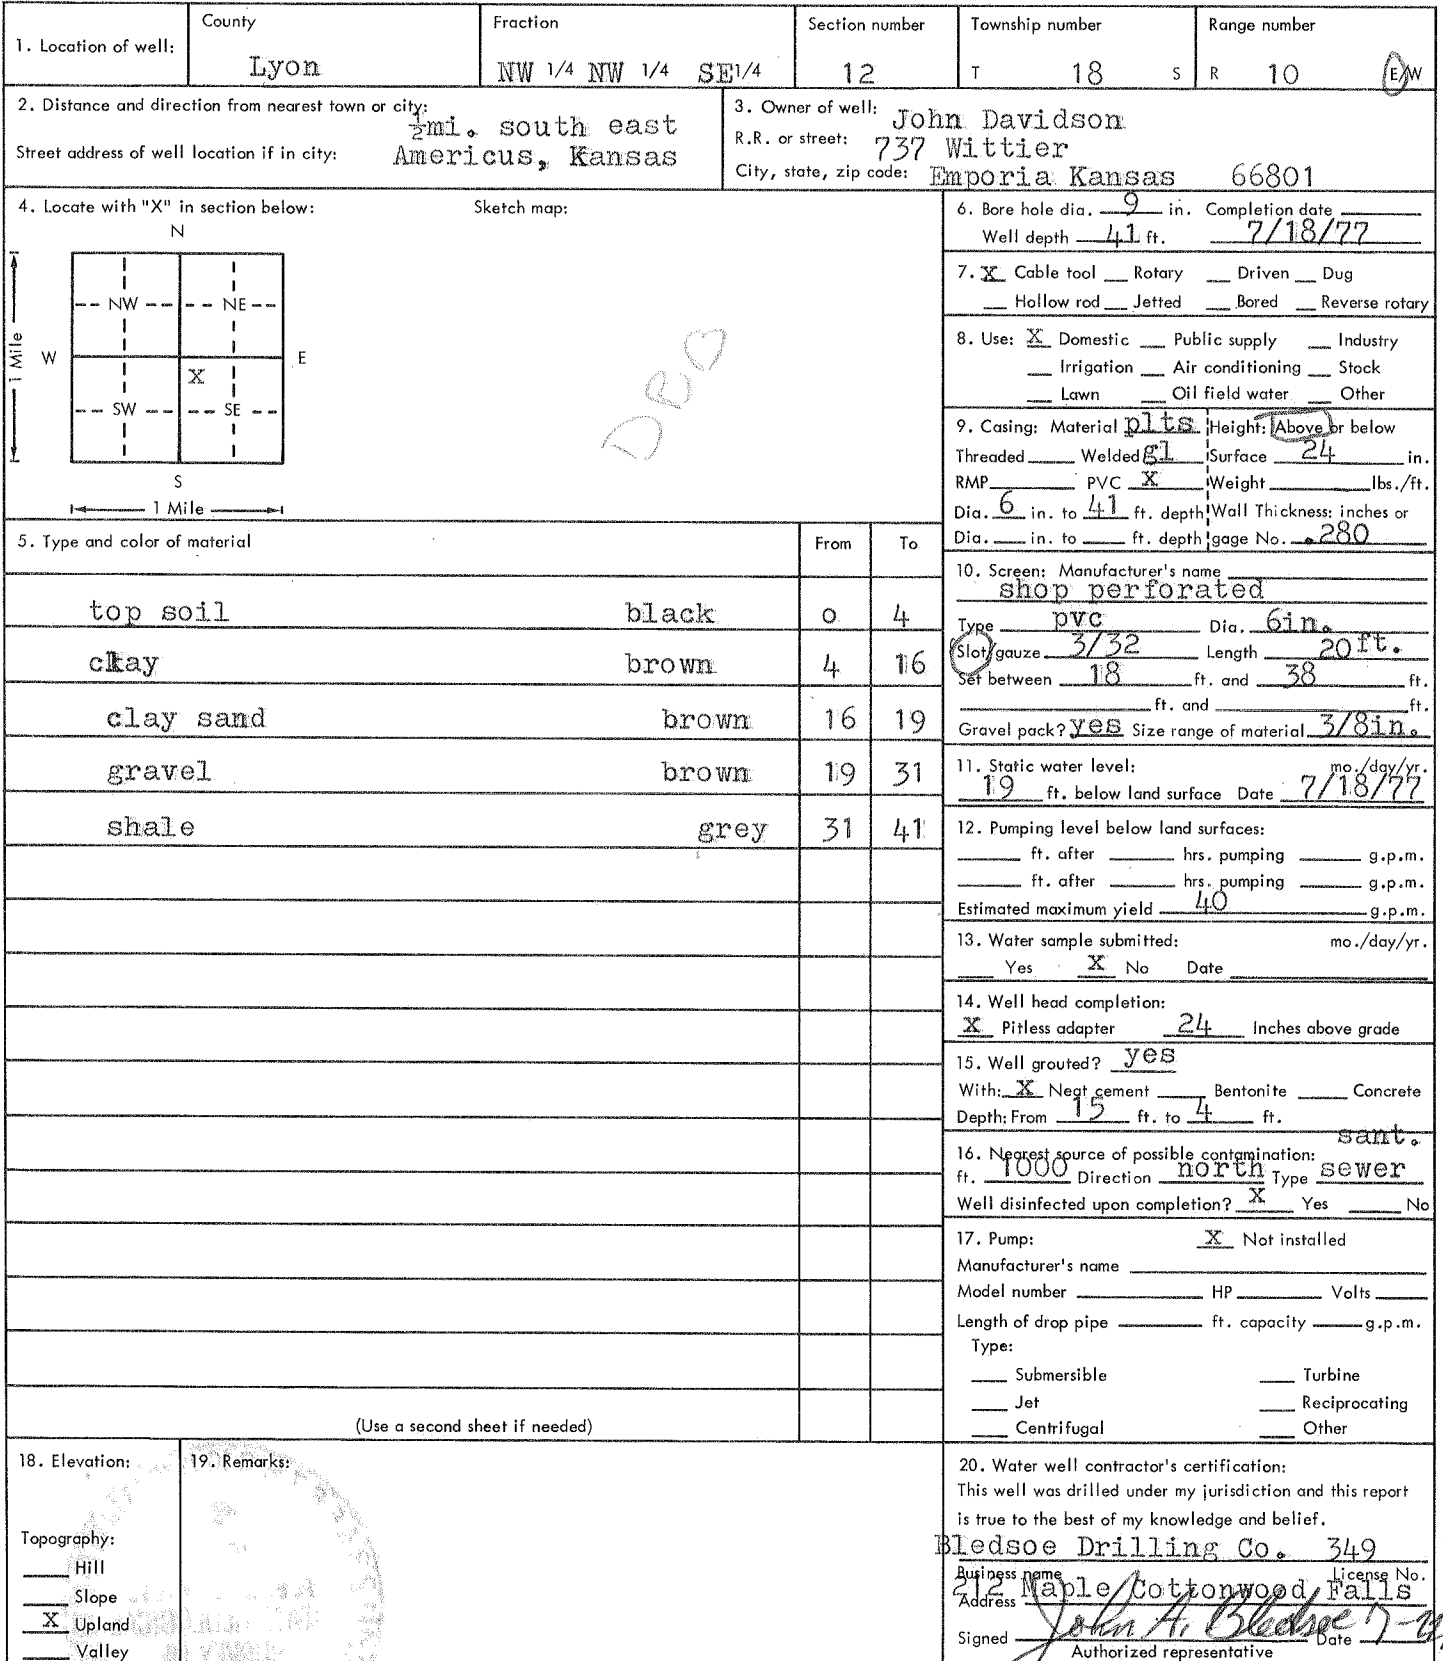 1. Location of well:
County
Lyon
Fraction
NW 1/4 NW 1/4 SE1/4
Section number
12
Township number
T 18 S
Range number
R 10 E/W
2. Distance and direction from nearest town or city:
½mi. south east
Street address of well location if in city:
Americus, Kansas
3. Owner of well: John Davidson
R.R. or street: 737 Wittier
City, state, zip code: Emporia Kansas 66801
4. Locate with "X" in section below:
Sketch map:
N
NW NE
W E
1 Mile
X
SW SE
S
1 Mile
DRO
5. Type and color of material From To
top soil black 0 4
clay brown 4 16
clay sand brown 16 19
gravel brown 19 31
shale grey 31 41
(Use a second sheet if needed)
6. Bore hole dia. 9 in. Completion date
Well depth 41 ft. 7/18/77
7. X Cable tool Rotary Driven Dug
Hollow rod Jetted Bored Reverse rotary
8. Use: X Domestic Public supply Industry
Irrigation Air conditioning Stock
Lawn Oil field water Other
9. Casing: Material plts Height: Above or below
Threaded Welded gl Surface 24 in.
RMP PVC X Weight lbs./ft.
Dia. 6 in. to 41 ft. depth Wall Thickness: inches or
Dia. in. to ft. depth gage No. .280
10. Screen: Manufacturer's name
shop perforated
Type pvc Dia. 6in.
Slot/gauze 3/32 Length 20ft.
Set between 18 ft. and 38 ft.
ft. and ft.
Gravel pack? yes Size range of material 3/8in.
11. Static water level: mo./day/yr.
19 ft. below land surface Date 7/18/77
12. Pumping level below land surfaces:
ft. after hrs. pumping g.p.m.
ft. after hrs. pumping g.p.m.
Estimated maximum yield 40 g.p.m.
13. Water sample submitted: mo./day/yr.
Yes X No Date
14. Well head completion:
X Pitless adapter 24 Inches above grade
15. Well grouted? yes
With: X Neat cement Bentonite Concrete
Depth: From 15 ft. to 4 ft.
sant.
16. Nearest source of possible contamination:
ft. 1000 Direction north Type sewer
Well disinfected upon completion? X Yes No
17. Pump: X Not installed
Manufacturer's name
Model number HP Volts
Length of drop pipe ft. capacity g.p.m.
Type:
Submersible Turbine
Jet Reciprocating
Centrifugal Other
18. Elevation:
Topography:
Hill
Slope
X Upland
Valley
19. Remarks:
20. Water well contractor's certification:
This well was drilled under my jurisdiction and this report
is true to the best of my knowledge and belief.
Bledsoe Drilling Co. 349
Business name License No.
212 Maple Cottonwood Falls
Address
Signed John A. Bledsoe Date
Authorized representative